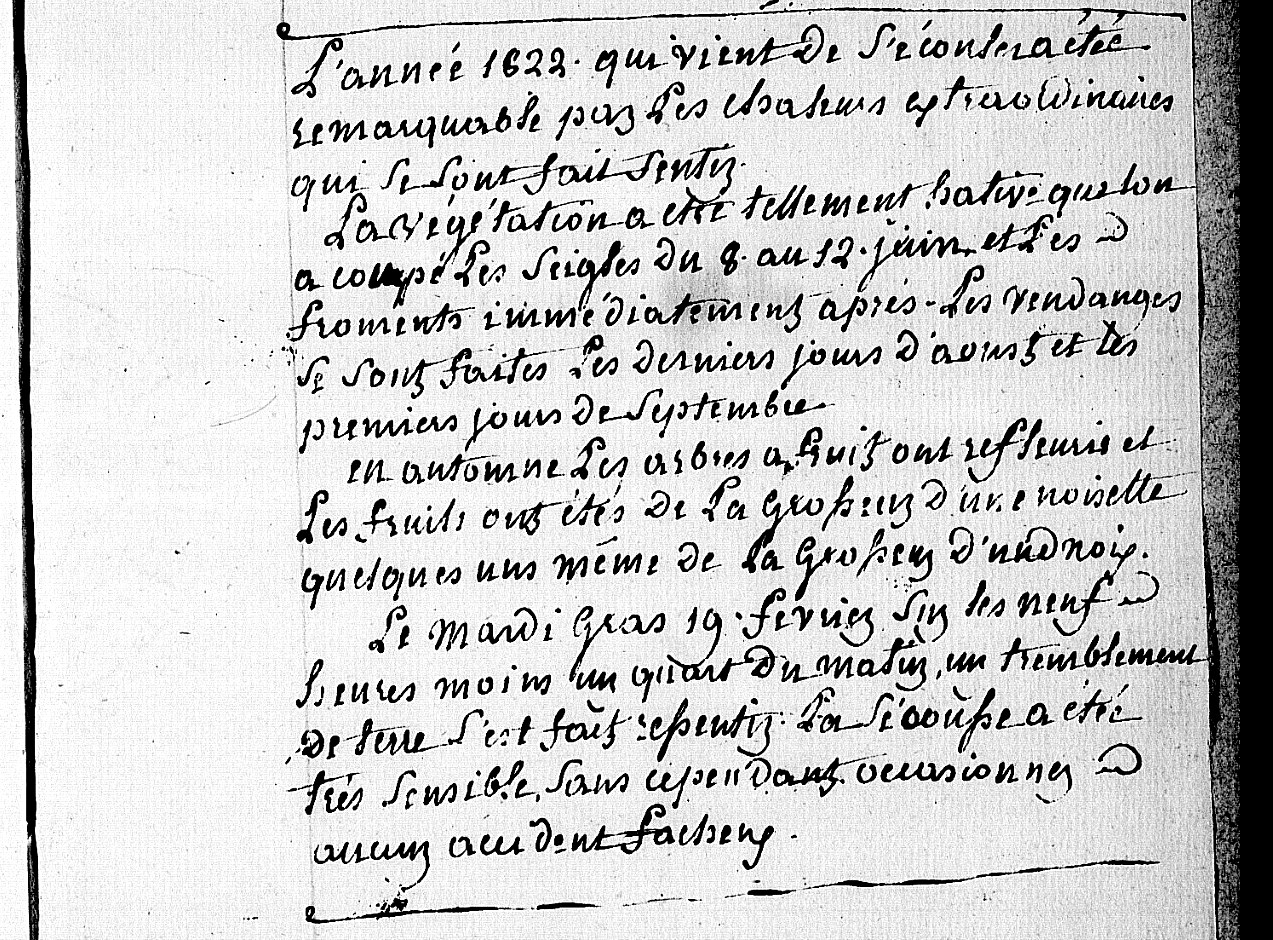 L'année 1822. qui vient de s'écouler a étée
remarquable par Les chaleurs extraordinaires
qui se sont fait sentir.
La végétation a étée tellement hative que lon
a coupé Les seigles du 8. au 12. juin et Les
froments immédiatement après - Les vendanges
se sont faites Les derniers jours d'aoust et les
premiers jours de septembre
en automne Les arbres a fruit ont refleurie et
Les fruits ont étés de La grosseur d'une noisette
quelques uns même de La grosseur d'une noix.
Le mardi gras 19. fevrier sur les neuf
heures moins un quart du matin, un tremblement
de terre s'est fait ressentir. La sécousse a étée
très sensible, sans cependant occasionner
aucun accident facheux.